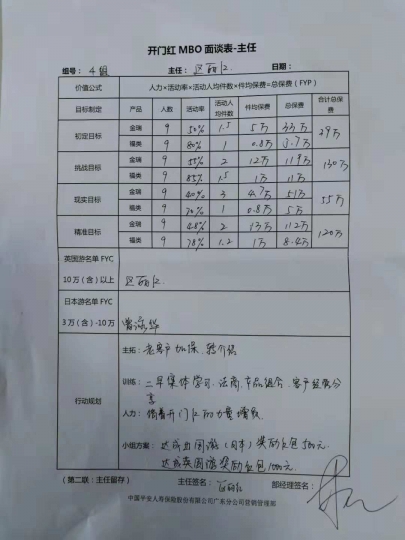 开门红 MBO 面谈表-主任
组号: 4组 主任: 日期:
价值公式 人力×活动率×活动人均件数×件均保费=总保费 (FYP)
目标制定 产品 人数 活动率 活动人均件数 件均保费 总保费 合计总保费
初定目标 金瑞 9 50% 1.5 5万 33万 39万
福类 9 80% 1 0.8万 5.7万
挑战目标 金瑞 9 50% 2 12万 119万 130万
福类 9 85% 1.5 1万 11万
现实目标 金瑞 9 40% 3 4.7万 51万 55万
福类 9 70% 1 0.8万 5万
精准目标 金瑞 9 48% 2 13万 112万 120万
福类 9 78% 1.2 1万 8.4万
英国游名单 FYC
10万 (含) 以上
日本游名单 FYC
3万 (含) -10万
行动规划
主拓: 老客户加保、转介绍
训练: 二早集体学习、法商、产品组合、客户经营分享
人力: 借着开门红的力量增员
小组方案: 达成出国游(日本)奖励红包500元.
达成英国游奖励红包1000元.
(第二联: 主任留存) 主任签名: 部经理签名:
中国平安人寿保险股份有限公司广东分公司营销管理部